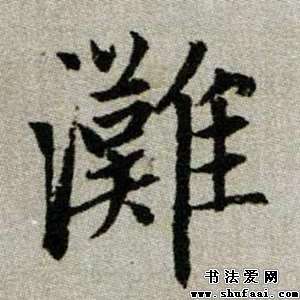 灘
书法爱网
www.shufaai.com